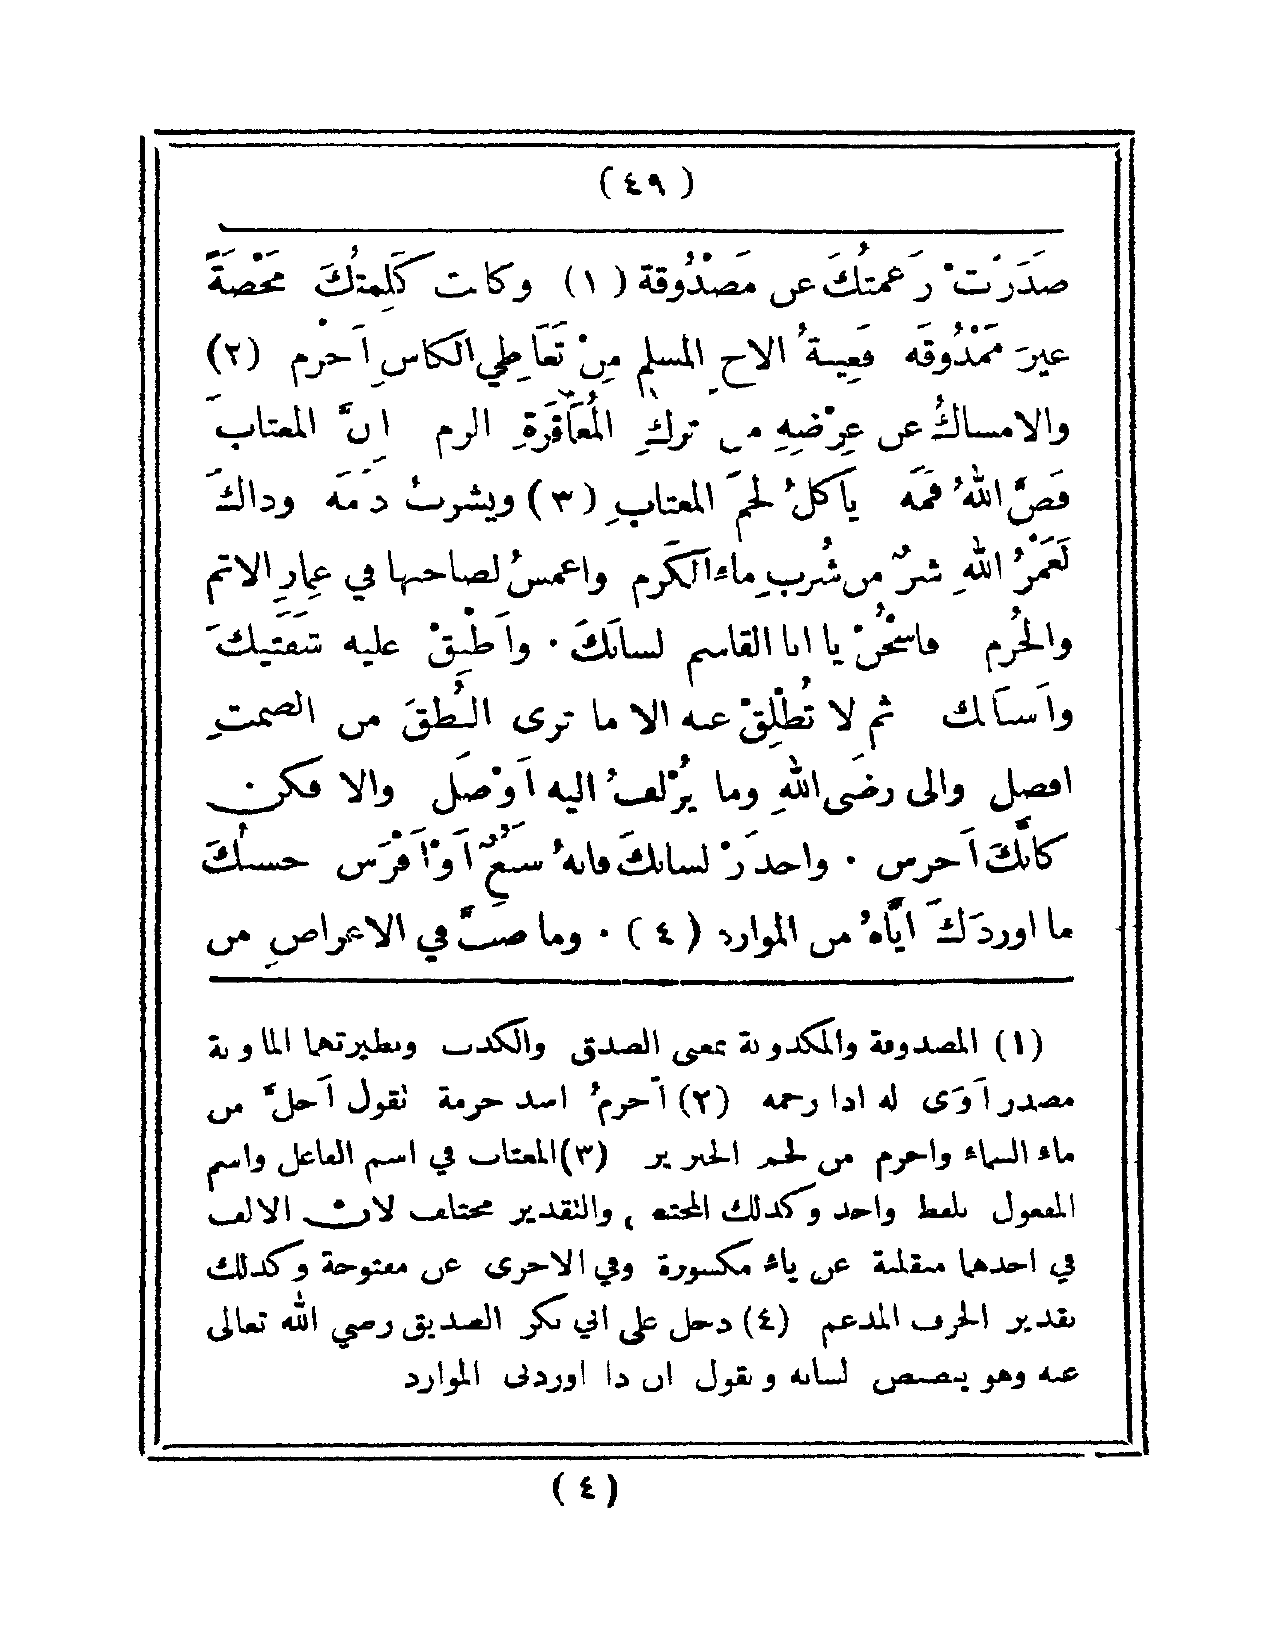 ( ٤٩ )
صَدَرَتْ زَعمتُكَ عن مَصْدُوقة ( ١ ) وكانت كَلِمتُكَ مَحْضَةً
غيرَ مَمْذُوقَه فغِيبةُ الاخِ المسلمِ مِنْ تَعَاطِي الكاسِ أَحْرم (٢)
والامساكُ عن عِرْضِهِ من تركِ المُعَاقَرةِ الزم انَّ المغتابَ
فضَّ اللهُ فَمَه يأكلُ لحمَ المغتابِ (٣) ويشربُ دَمَه وذاكَ
لَعَمْرُ اللهِ شرٌّ من شُربِ ماءِ الكَرم واغمسُ لصاحبها في غمارِ الاثم
والجُرم فاسْجُنْ يا ابا القاسم لسانَكَ ٠ وأَطْبِقْ عليه شَفَتيكَ
وأَسنانك ثم لا تُطْلِقْ عنه الا ما ترى النُطقَ من الصمتِ
افضل والى رضَى اللهِ وما يُزْلفُ اليه أَوْصَل والا فكن
كانَّكَ أَخرس ٠ واحذَرْ لسانكَ فانهُ سَبُعٌ أَوْ أَفْرَس حسبكَ
ما اوردَكَ ايَّاهُ من الموارد ( ٤ ) ٠ وما صبَّ في الاعراضِ من
(١) المصدوقة والمكذوبة بمعنى الصدق والكذب ونظيرتهما الماوية
مصدر أَوَى له اذا رحمه (٢) أَحرمُ اشد حرمة تقول أَحلّ من
ماء السماء واحرم من لحم الخنزير (٣) المغتاب في اسم الفاعل واسم
المفعول بلفظ واحد وكذلك المجتبّ والتقدير مختلف لان الالف
في احدهما منقلبة عن ياء مكسورة وفي الاخرى عن مفتوحة وكذلك
تقدير الحرف المدغم (٤) دخل على ابي بكر الصديق رضي الله تعالى
عنه وهو ينصنص لسانه ويقول ان ذا اوردني الموارد
( ٤ )